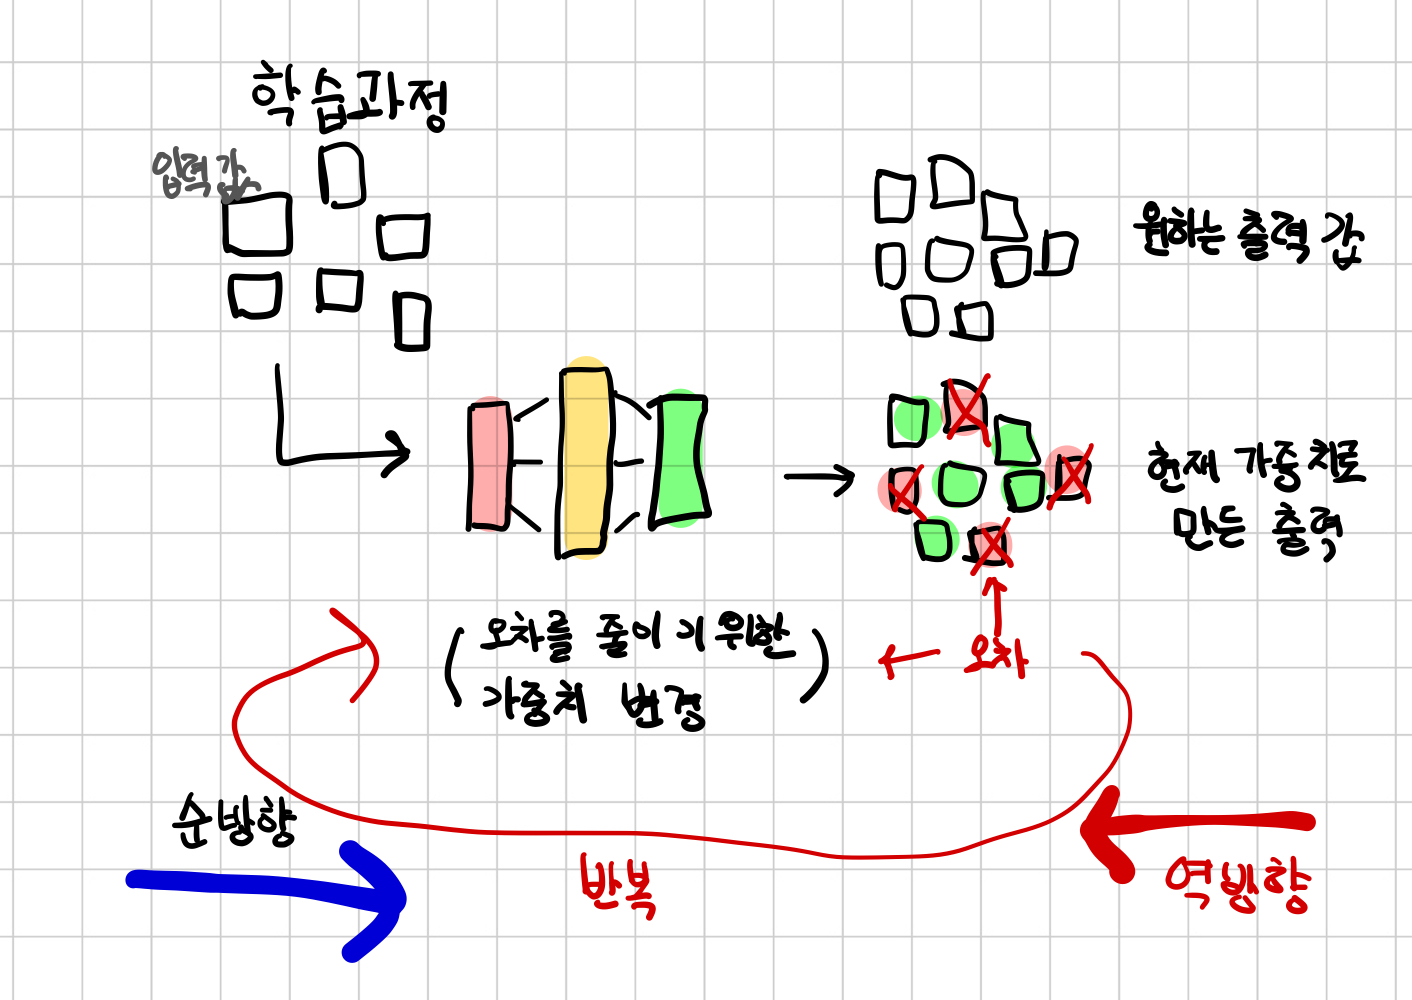 학습과정
입력 값
원하는 출력 값
현재 가중치로
만든 출력
(오차를 줄이기 위한
가중치 변경)
오차
순방향
반복
역방향